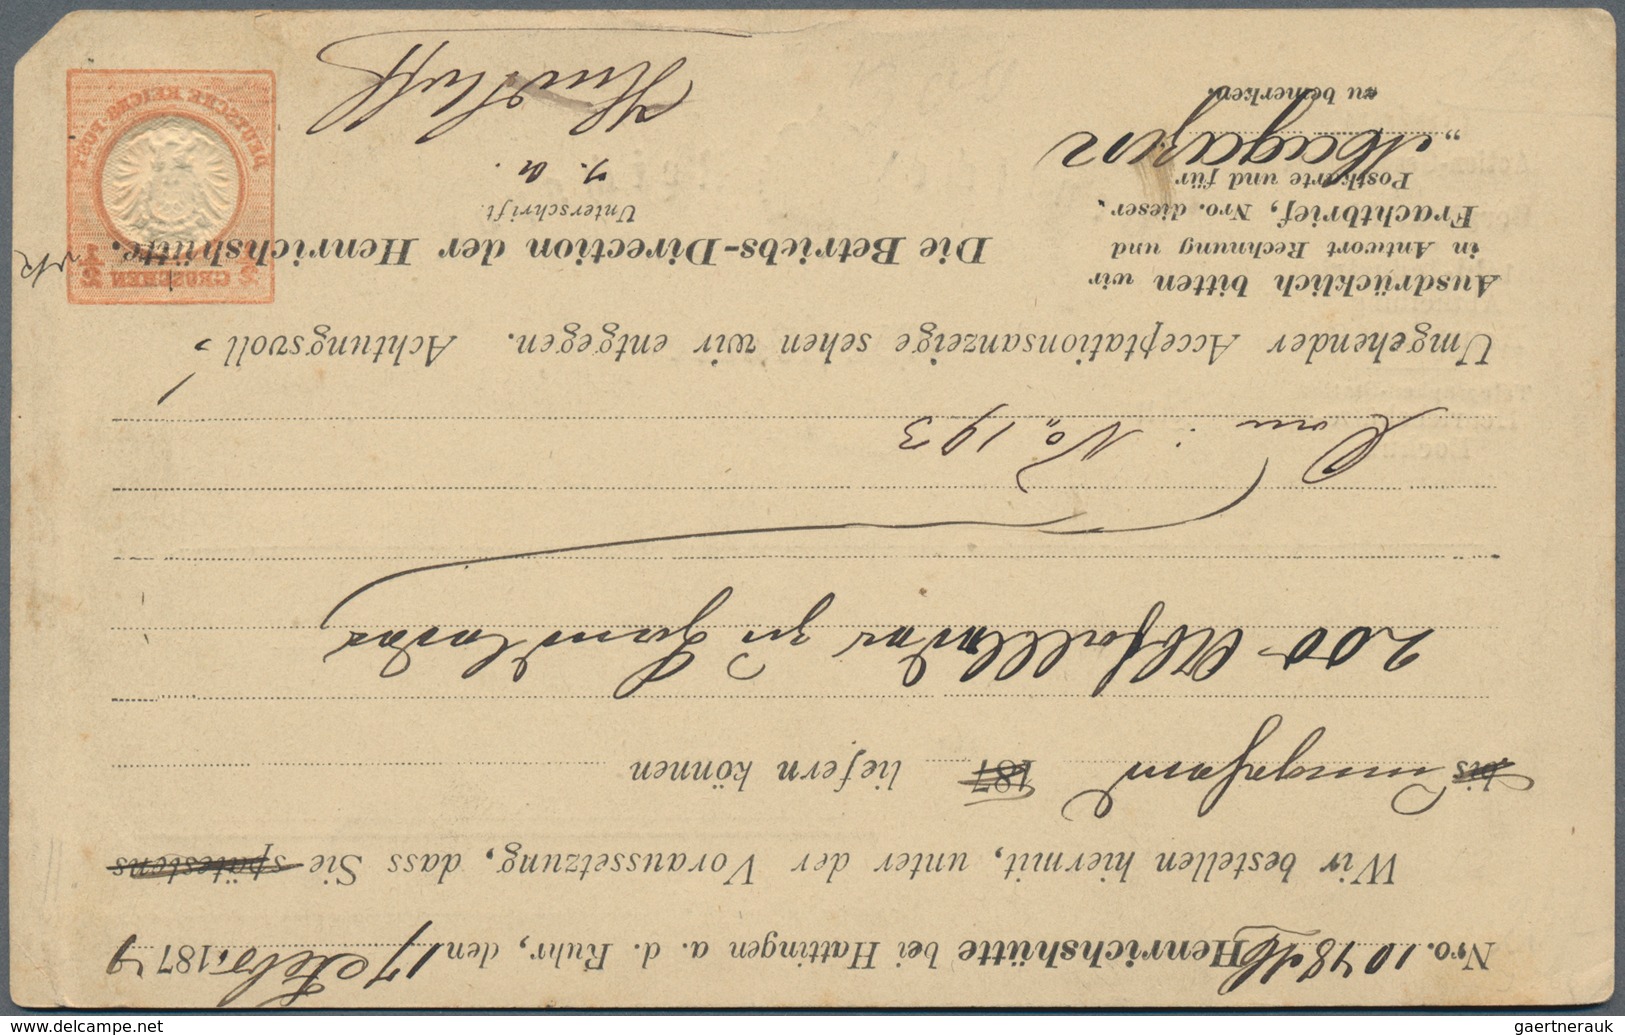 Nro. 1048 M Henrichshütte bei Hattingen a. d. Ruhr, den 17 Febr. 1874
Wir bestellen hiermit, unter der Voraussetzung, dass Sie spätestens
bis umgehend 187 liefern können
200
No. 193
Umgehender Acceptationsanzeige sehen wir entgegen. Achtungsvoll!
Ausdrücklich bitten wir
in Antwort Rechnung und
Frachtbrief, Nro. dieser
Postkarte und für
„Magazin
zu bemerken.
Die Betriebs-Direction der Henrichshütte.
Unterschrift.
DEUTSCHE REICHS POST
1/2 GROSCHEN 1/2
gaertnerauk @ delcampe.net